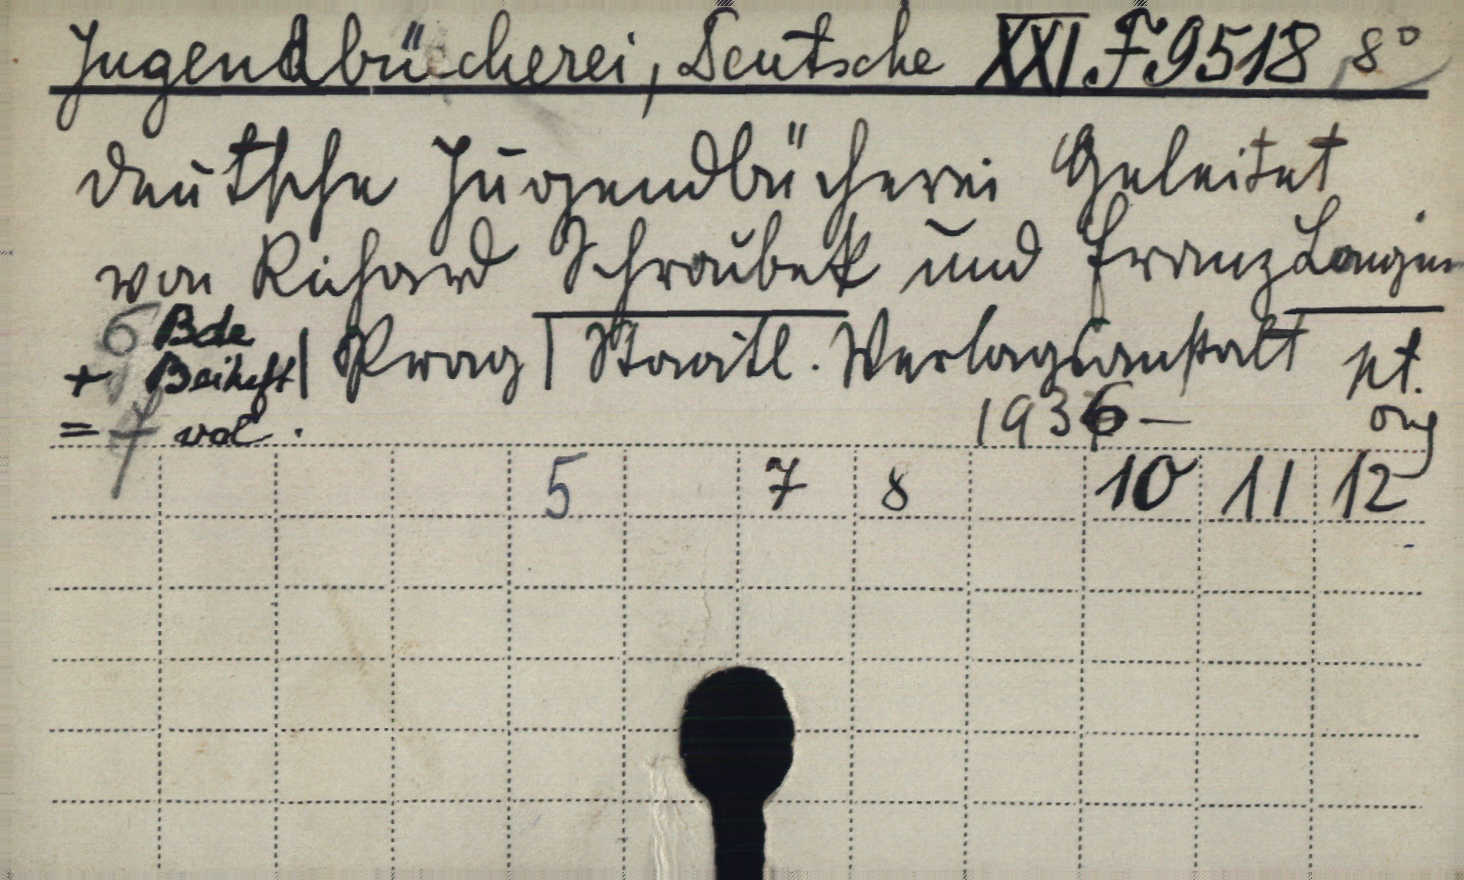 Jugendbücherei, Deutsche XXI F 9518, 8°
Deutsche Jugendbücherei Geleitet
von Richard Schraubek und Franz Longin
6 Bde | Prag | Staatl. Verlagsanstalt
+ 1 Beiheft
= 7 vol. 1936 —
5 7 8 10 11 12